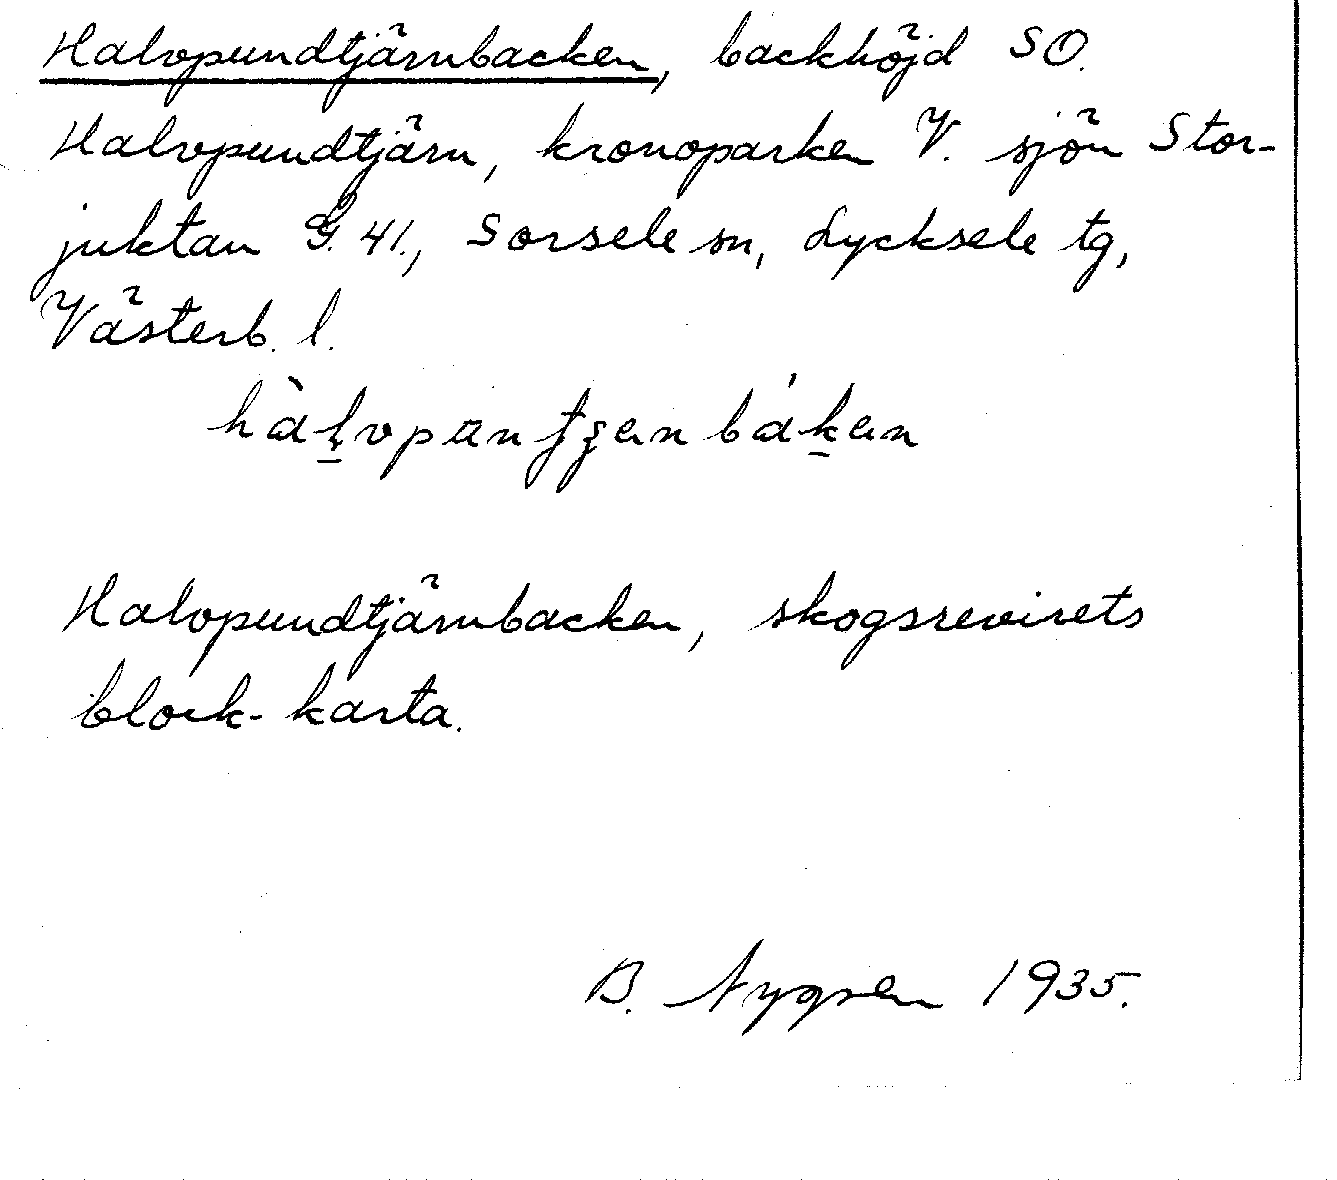 Halvpundtjärnbacken, backhöjd SO.
Halvpundtjärn, kronoparken V. sjön Stor-
juktan G. 41., Sorsele sn, Lycksele tg,
Västerb. l.
Halvpundtjärnbacken, skogsrevirets
block-karta.
B. Nygren 1935.